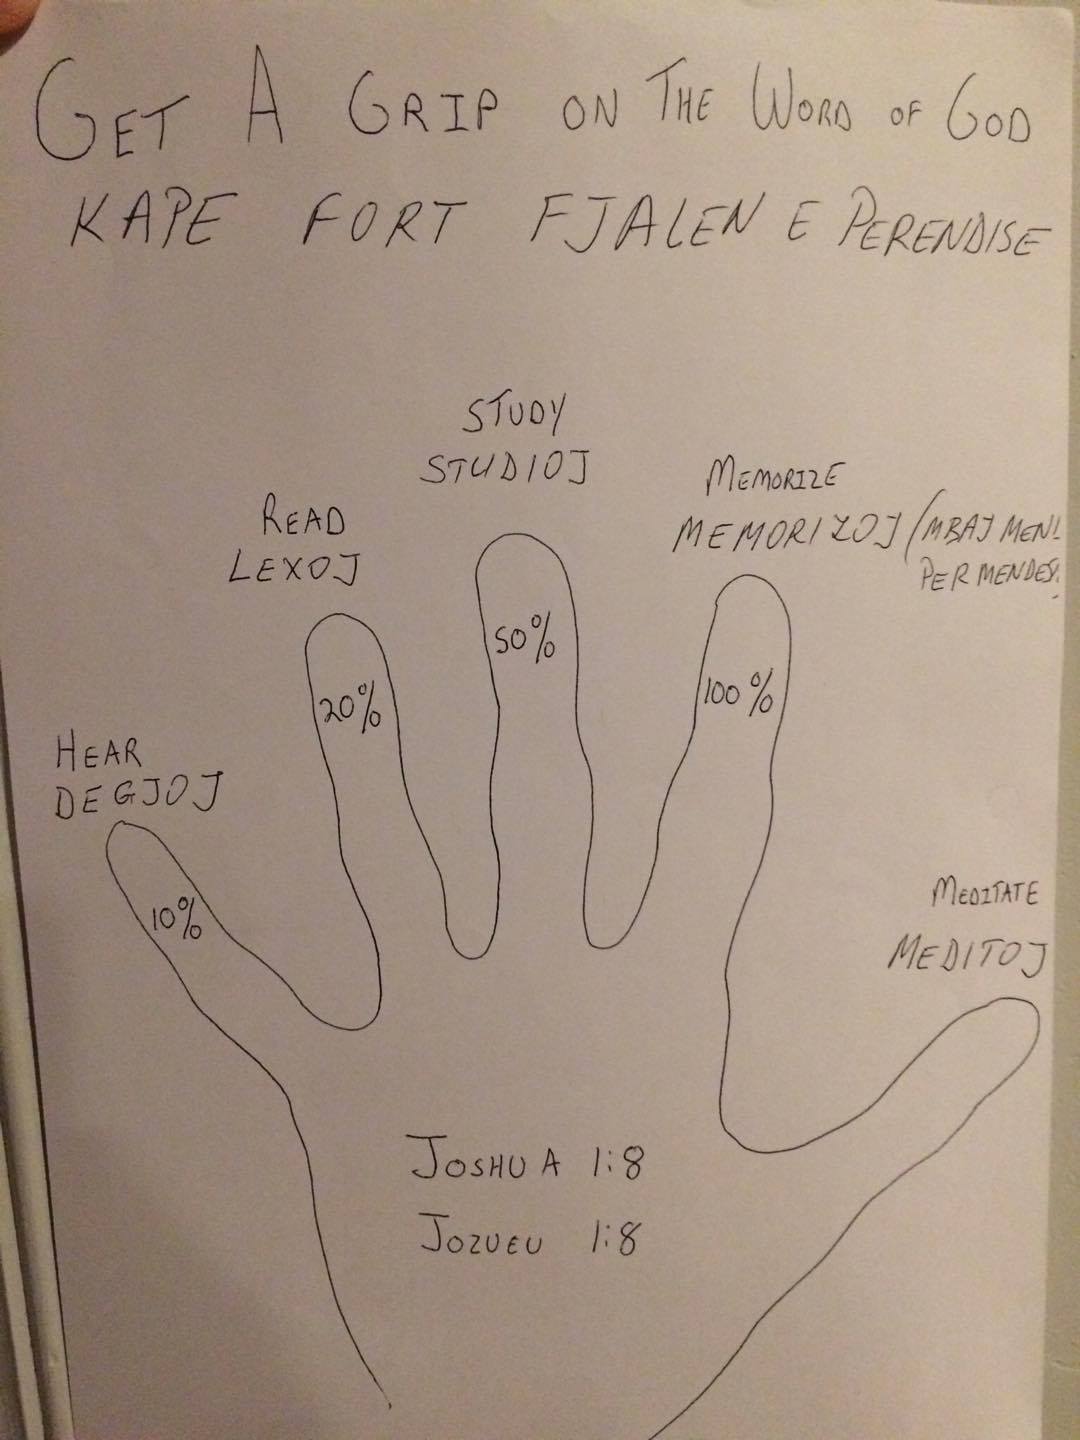 GET A GRIP ON THE WORD OF GOD
KAPE FORT FJALEN E PERENDISE
STUDY
STUDIOJ
MEMORIZE
MEMORIZOJ/MBAJ MEND
PER MENDESH
READ
LEXOJ
50%
100%
20%
HEAR
DEGJOJ
10%
MEDITATE
MEDITOJ
JOSHUA 1:8
JOZUEU 1:8